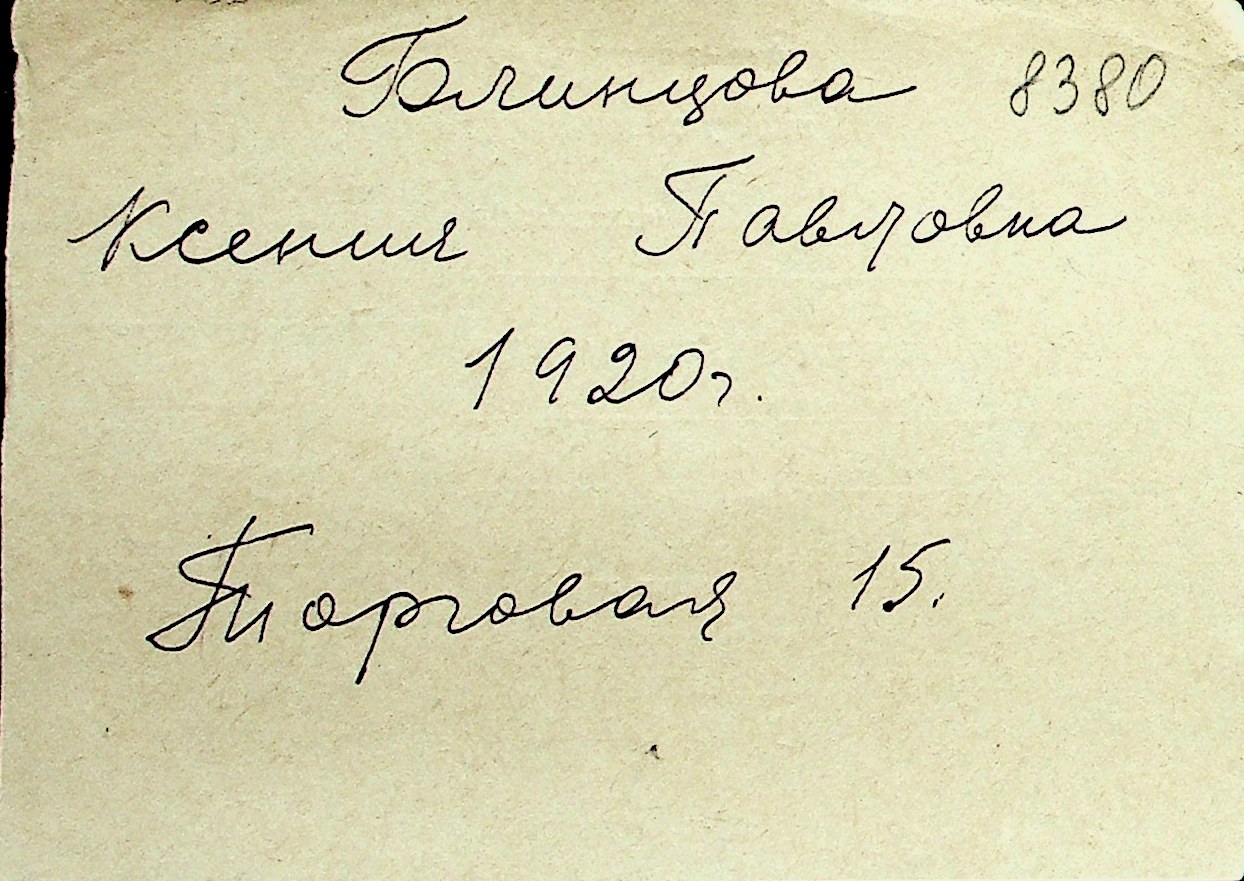 Блинцова 8380
Ксения Павловна
1920г.
Торговая 15.